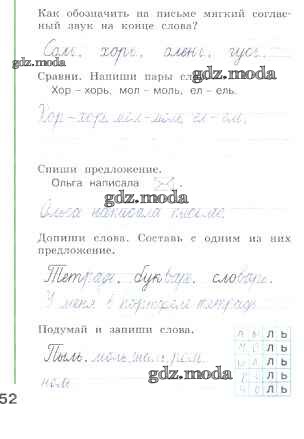 Как обозначить на письме мягкий соглас-
ный звук на конце слова?
Соль, хорь, олень, гусь.
gdz.moda
Сравни. Напиши пары сл
gdz.moda
Хор – хорь, мол – моль, ел – ель.
Хор – хорь, мол – моль, ел – ель.
Спиши предложение.
Ольга написала
gdz.moda
Ольга написала письмо.
Допиши слова. Составь с одним из них
предложение.
Тетрадь, букварь, словарь.
У меня в портфеле тетрадь.
gdz.moda
Подумай и запиши слова.
Пыль, моль,
gdz.moda
ноль.
52
gdz.moda